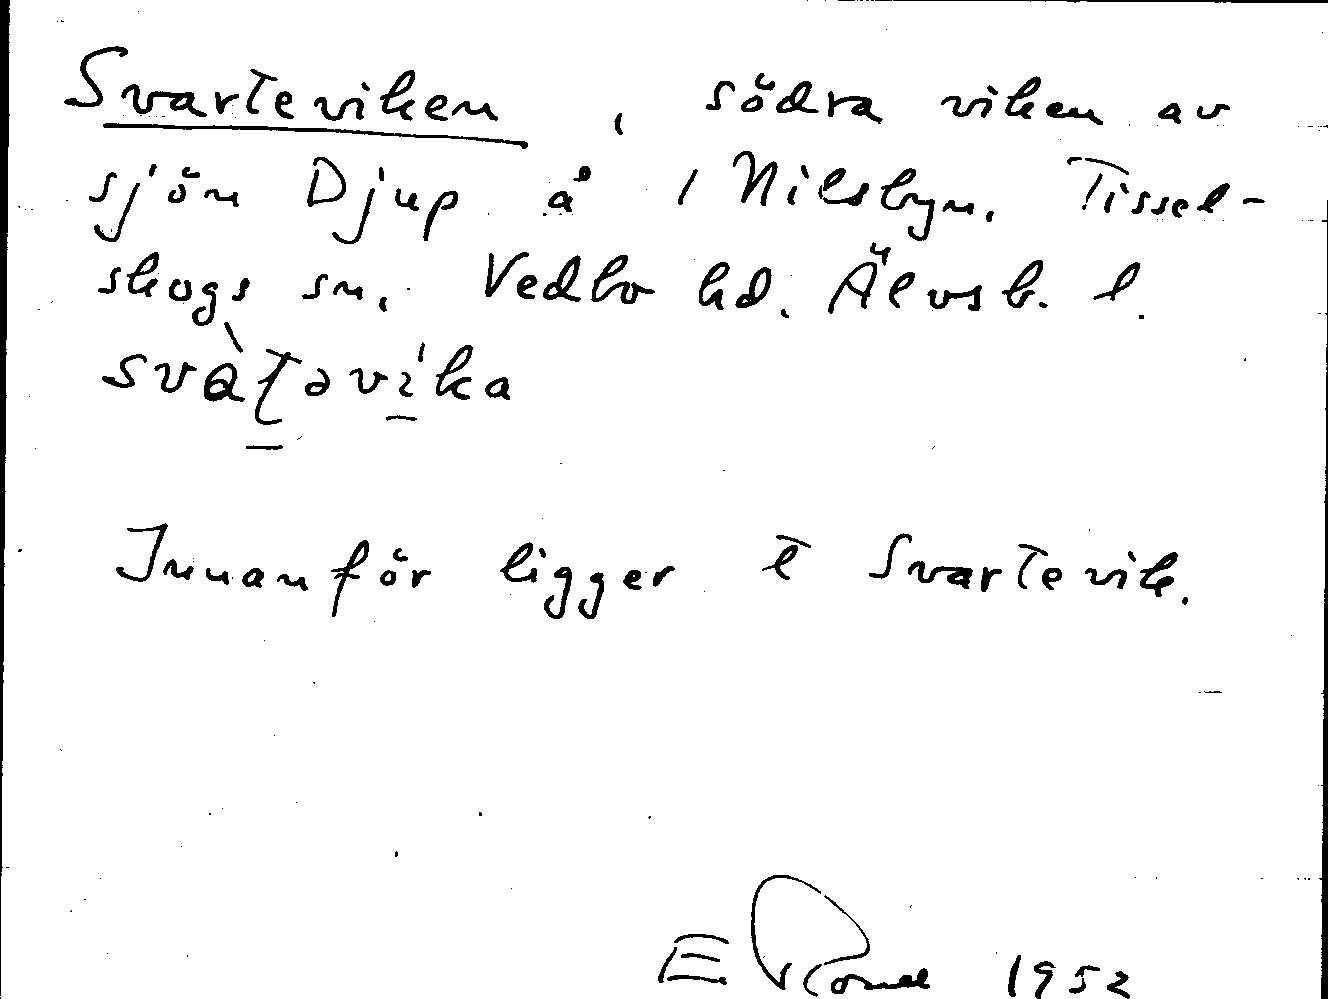 Svarteviken, södra viken av
sjön Djup å i Nilsbyn, Tissel-
skogs sn, Vedbo hd. Älvsb. l.
svàʈəvi̱ka
Innanför ligger t Svartevik.
E. 1952